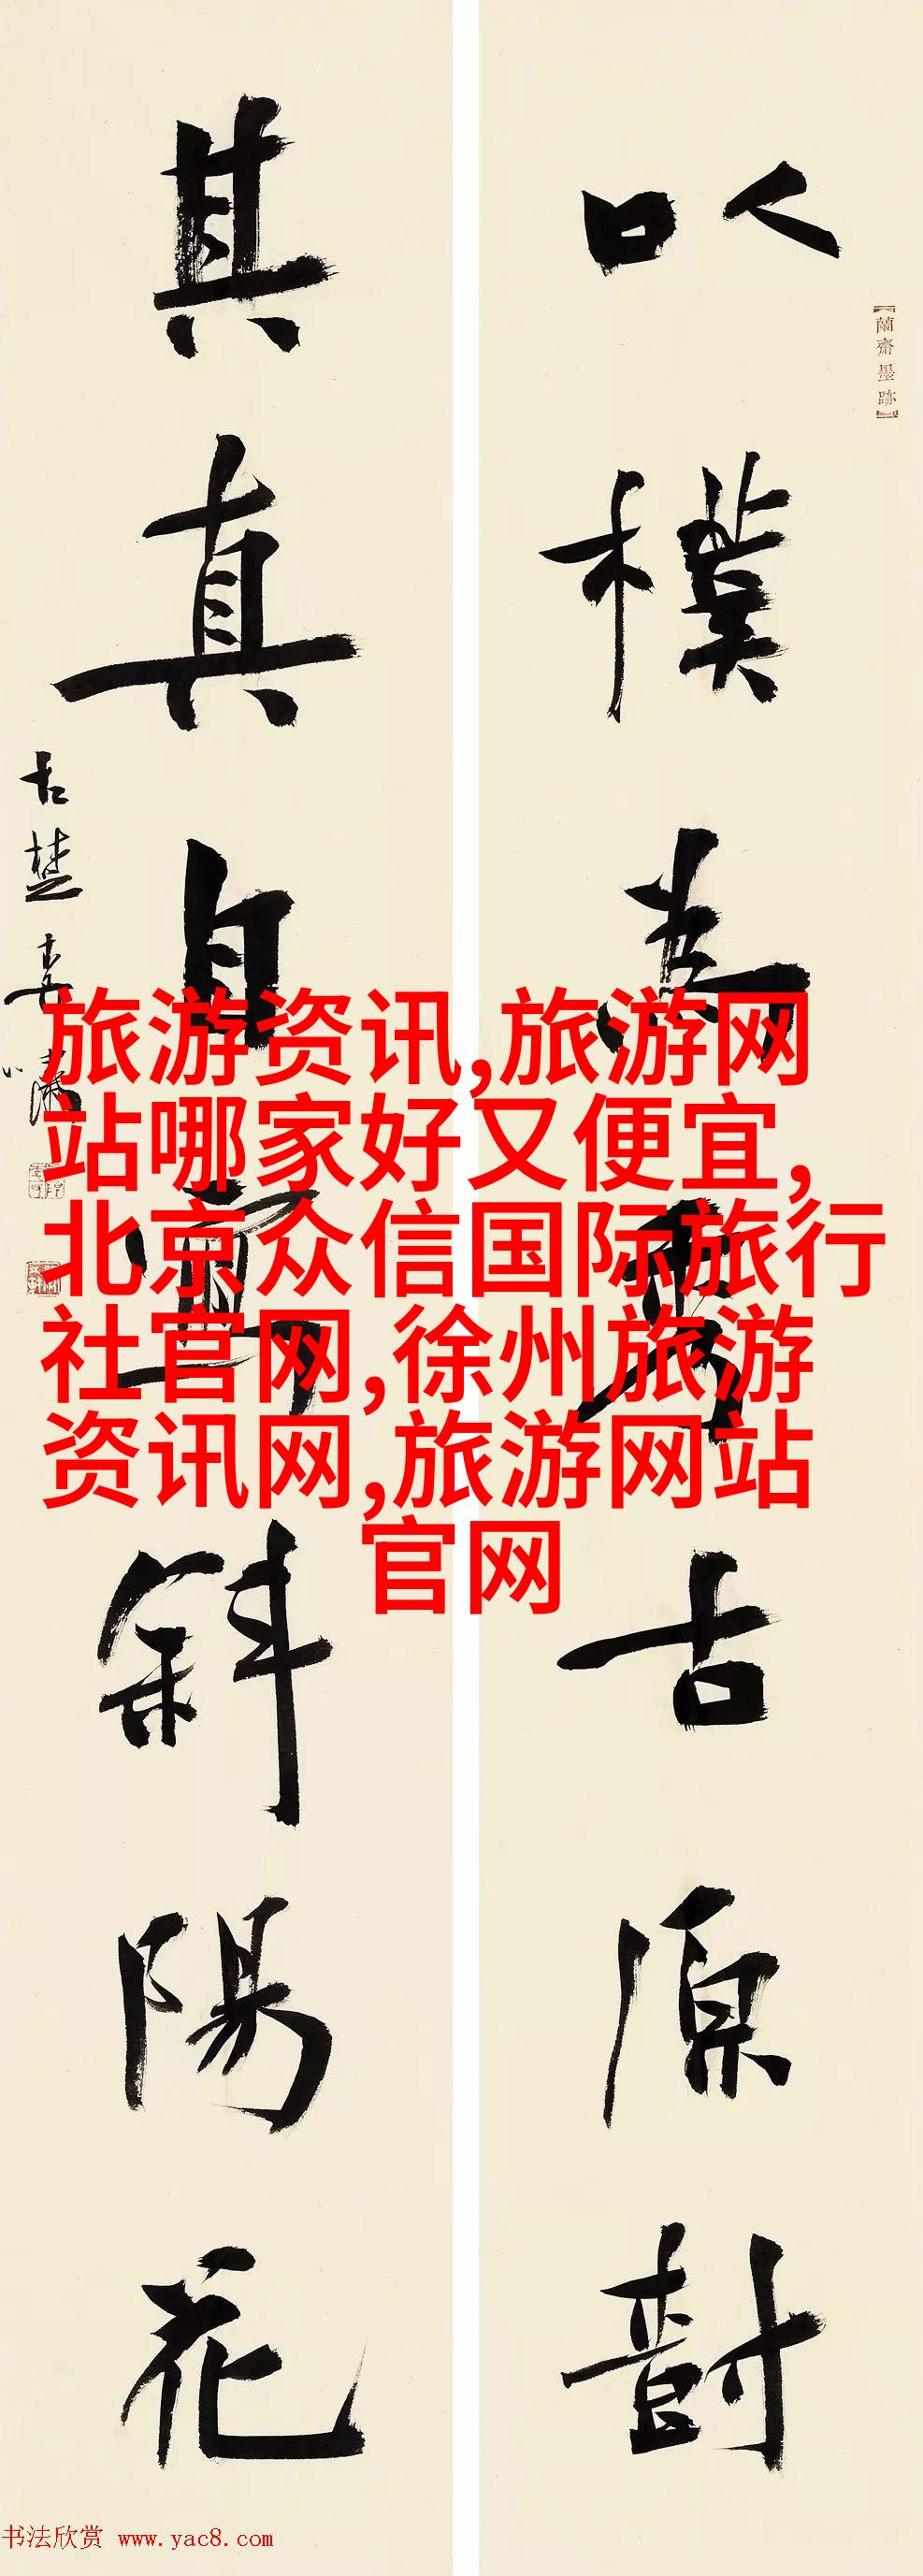 以樸為秀古原樹
蘭齋墨跡
其真自寫斜陽花
古楚婁嘯
旅游资讯,旅游网
站哪家好又便宜,
北京众信国际旅行
社官网,徐州旅游
资讯网,旅游网站
官网
书法欣赏 www.yac8.com